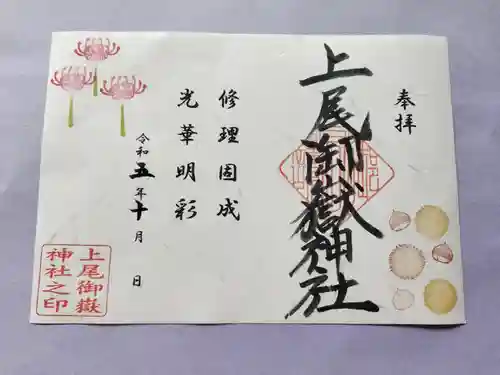 奉拝
上尾御嶽神社
修理固成
光華明彩
令和五年十月 日
上尾御嶽
神社之印